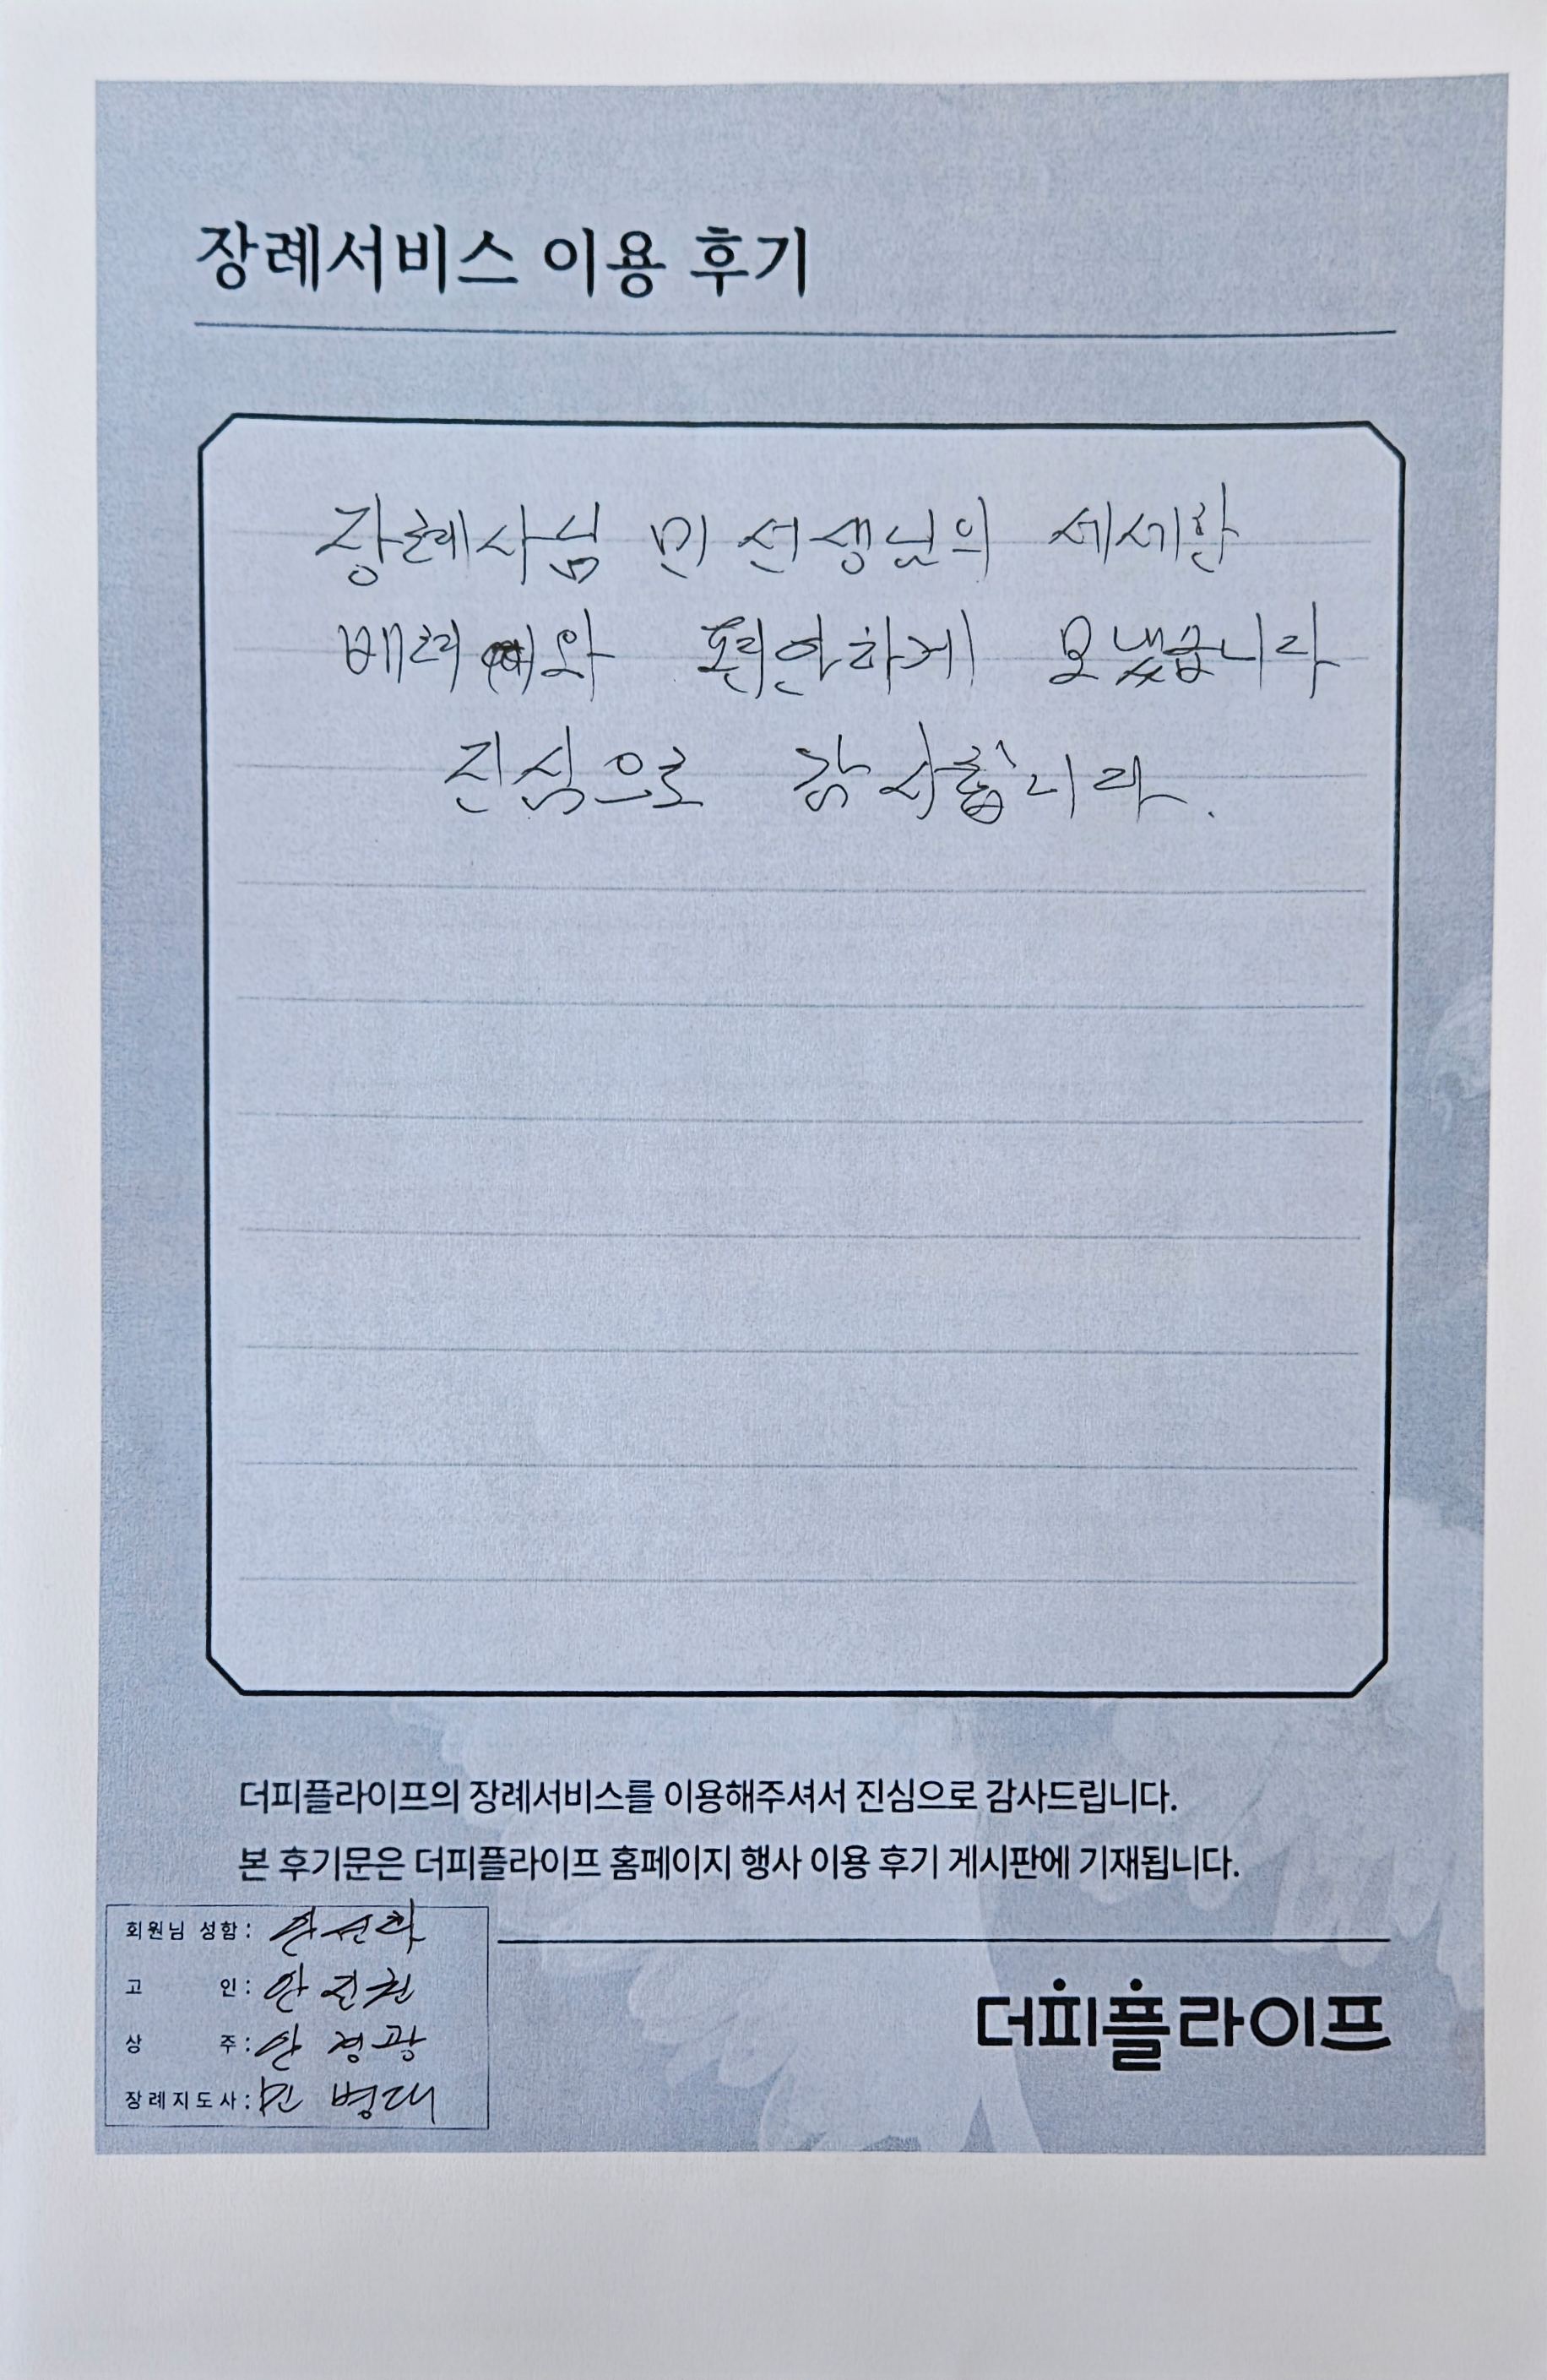 장례서비스 이용 후기
장례사님 민 선생님의 세세한
배려와 편안하게 모셨습니다
진심으로 감사합니다.
더피플라이프의 장례서비스를 이용해주셔서 진심으로 감사드립니다.
본 후기문은 더피플라이프 홈페이지 행사 이용 후기 게시판에 기재됩니다.
회원님 성함:
고 인: 안진권
상 주: 안경광
장례지도사: 민병대
더피플라이프